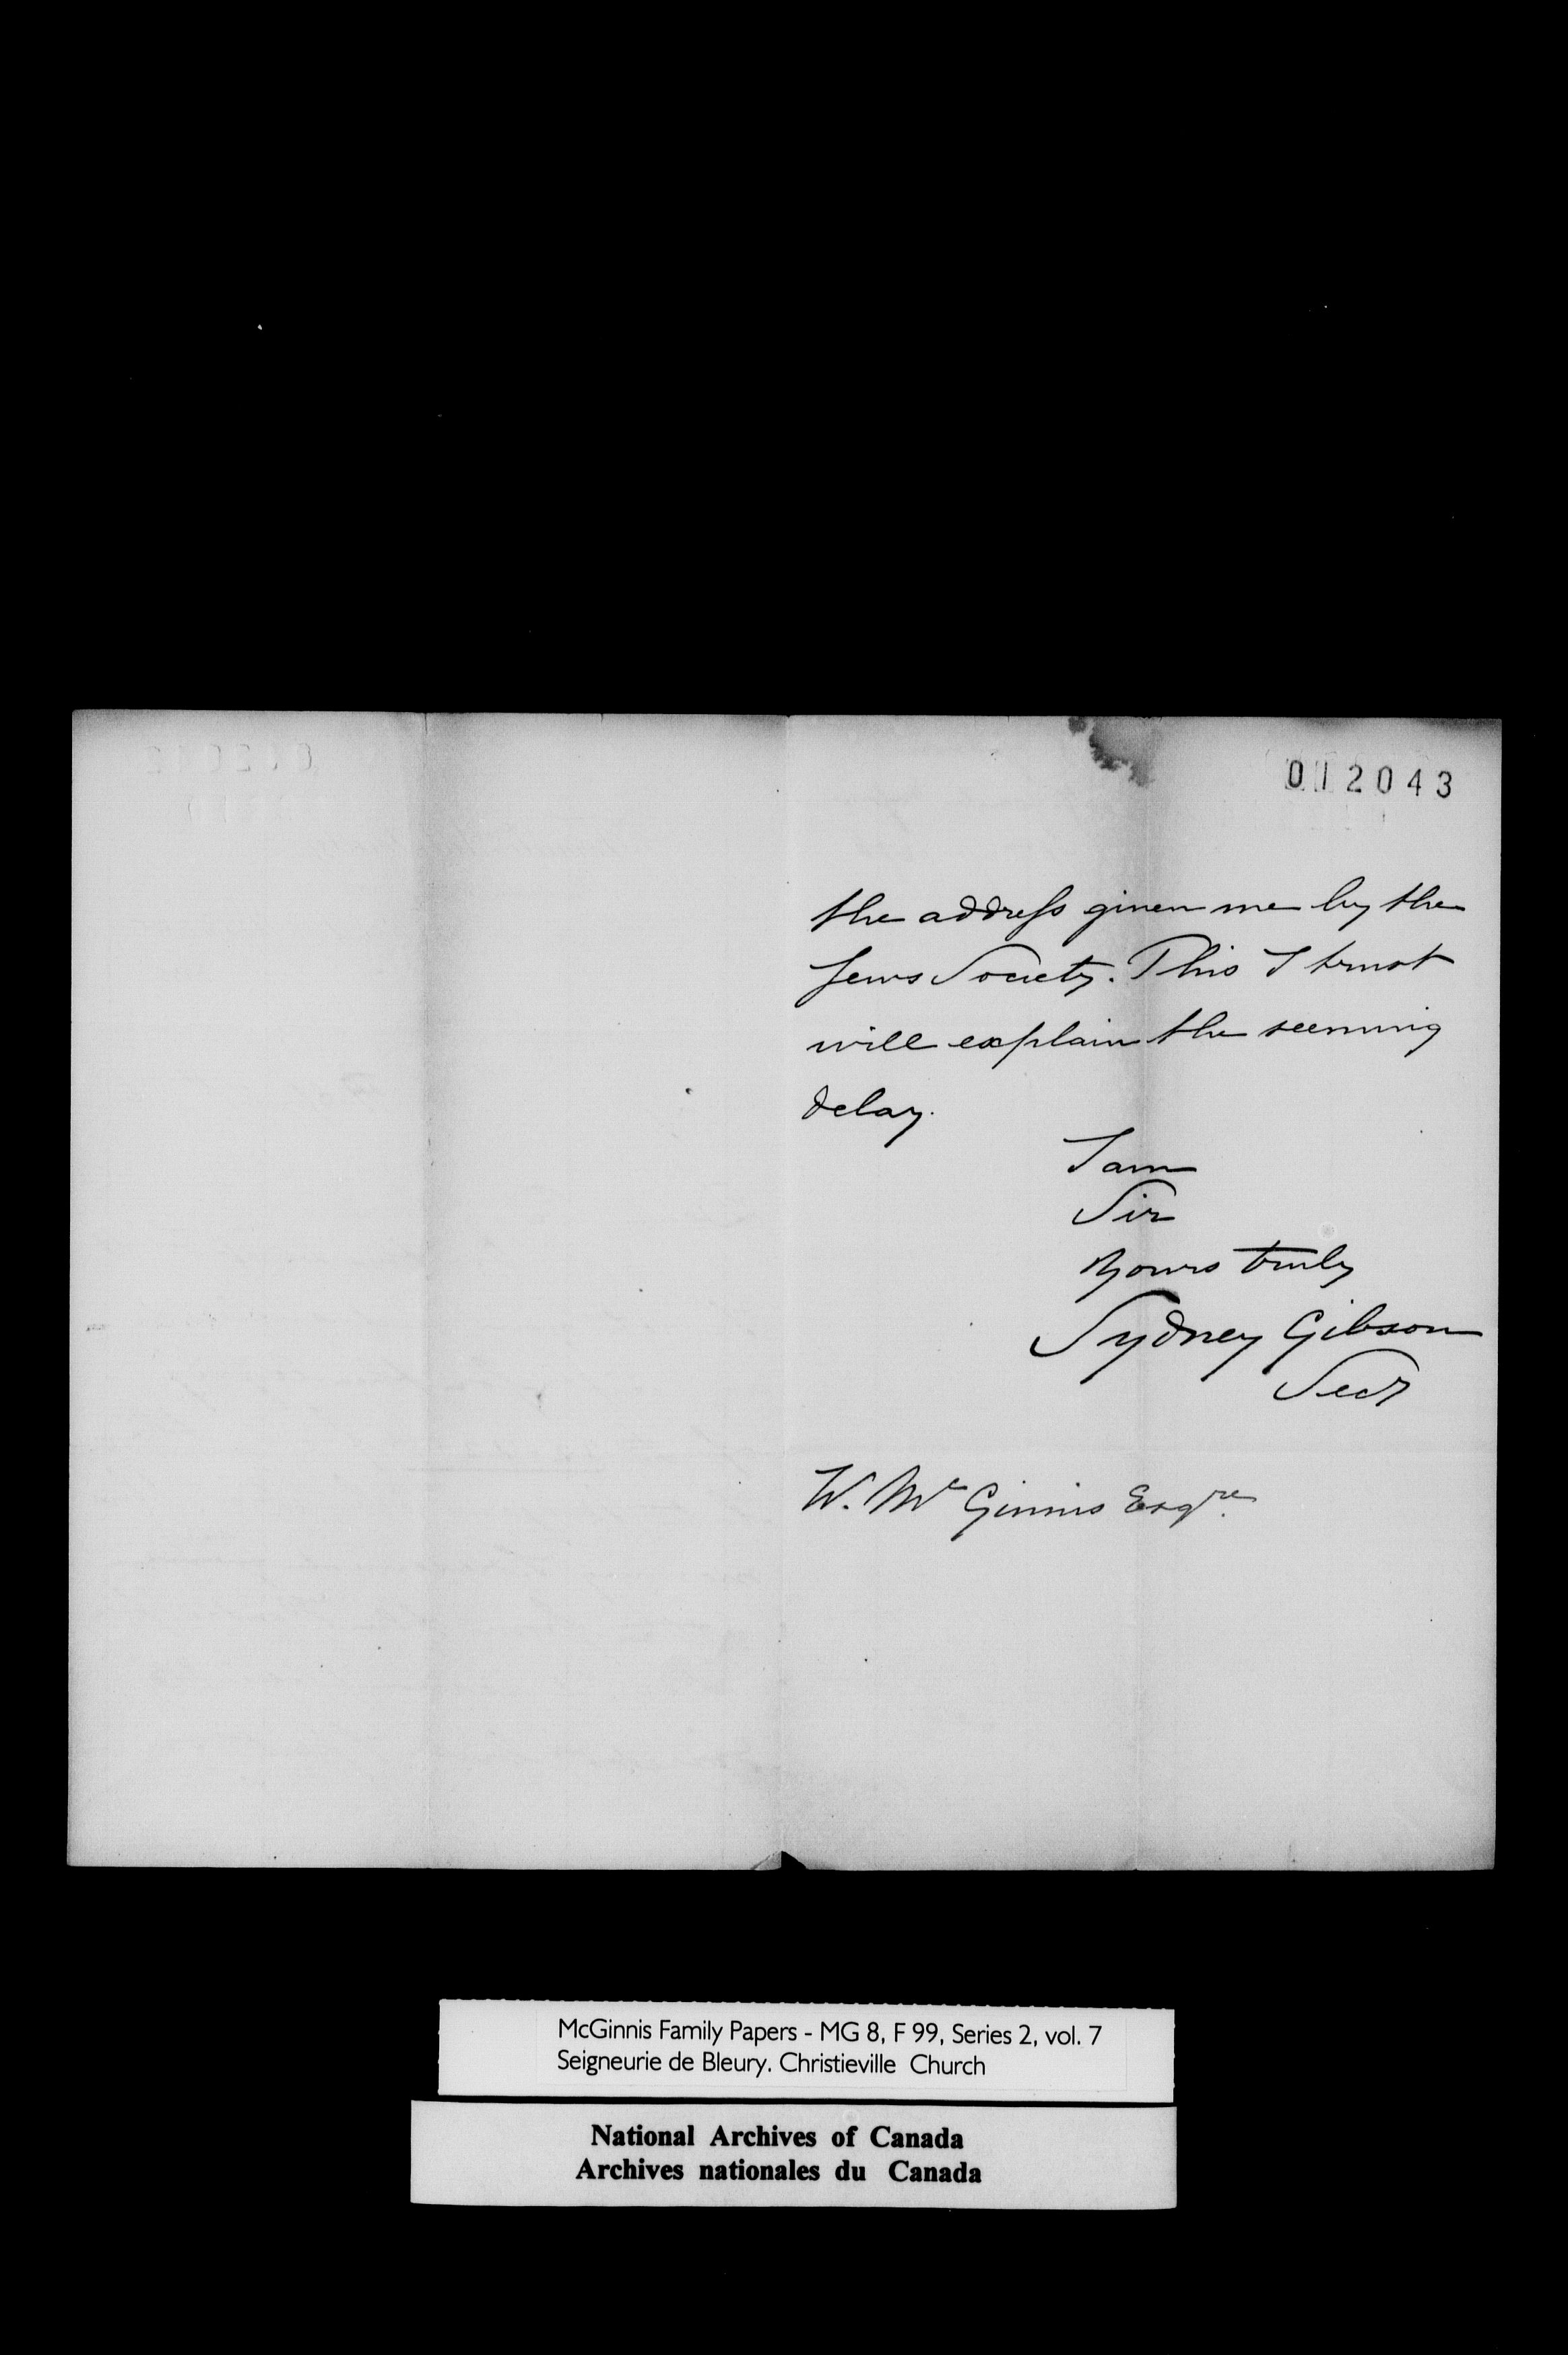 012043
the address given me by the
Jews Society. This I trust
will explain the seeming
delay.
I am
Sir
Yours truly
Sydney Gibson
Secy
W. Mc Ginnis Esqre.
McGinnis Family Papers - MG 8, F 99, Series 2, vol. 7
Seigneurie de Bleury. Christieville Church
National Archives of Canada
Archives nationales du Canada